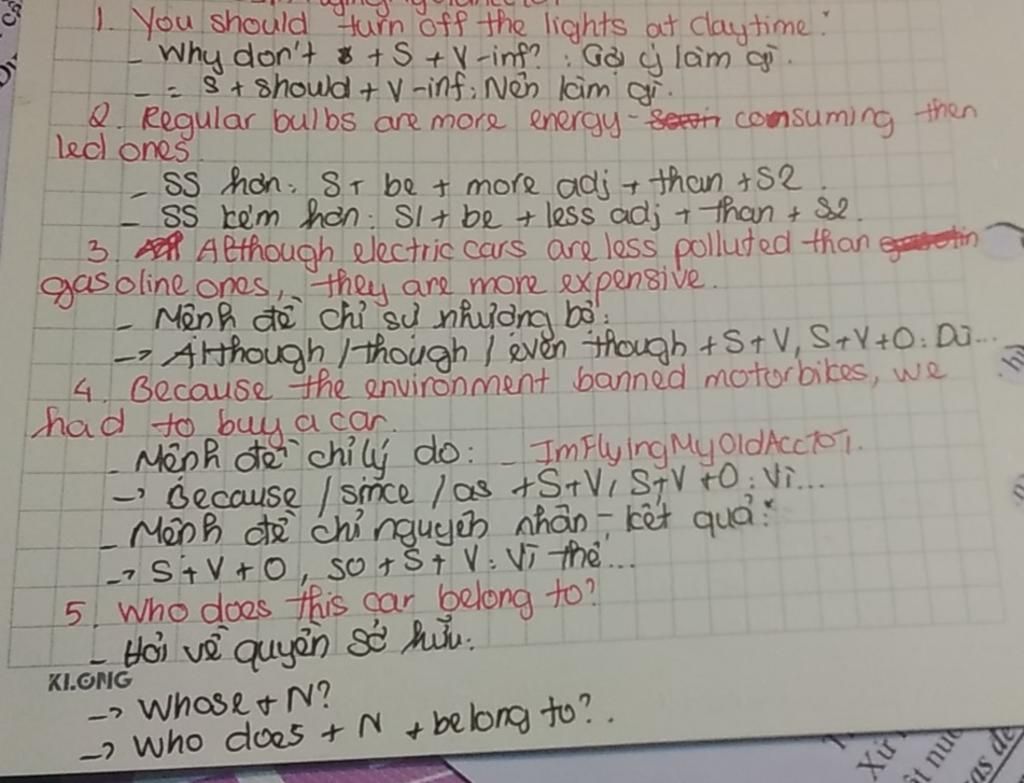 1. You should turn off the lights at daytime:
- Why don't + S + V-inf? : Gợi ý làm gì.
- = S + should + V-inf: Nên làm gì.
2. Regular bulbs are more energy- consuming then
led ones.
- SS hơn: S + be + more adj + than + S2.
- SS kém hơn: S1 + be + less adj + than + S2.
3. Although electric cars are less polluted than
gasoline ones, they are more expensive.
- Mệnh đề chỉ sự nhượng bộ:
-> Although / though / even though + S + V, S + V + O: Dù...
4. Because the environment banned motorbikes, we
had to buy a car.
- Mệnh đề chỉ lý do: - ImFlyingMyOldAccTOT.
-> Because / since / as + S + V, S + V + O: Vì...
- Mệnh đề chỉ nguyên nhân - kết quả:
-> S + V + O, so + S + V: Vì thế...
5. Who does this car belong to?
- Hỏi về quyền sở hữu:
KLONG
-> Whose + N?
-> Who does + N + belong to?.